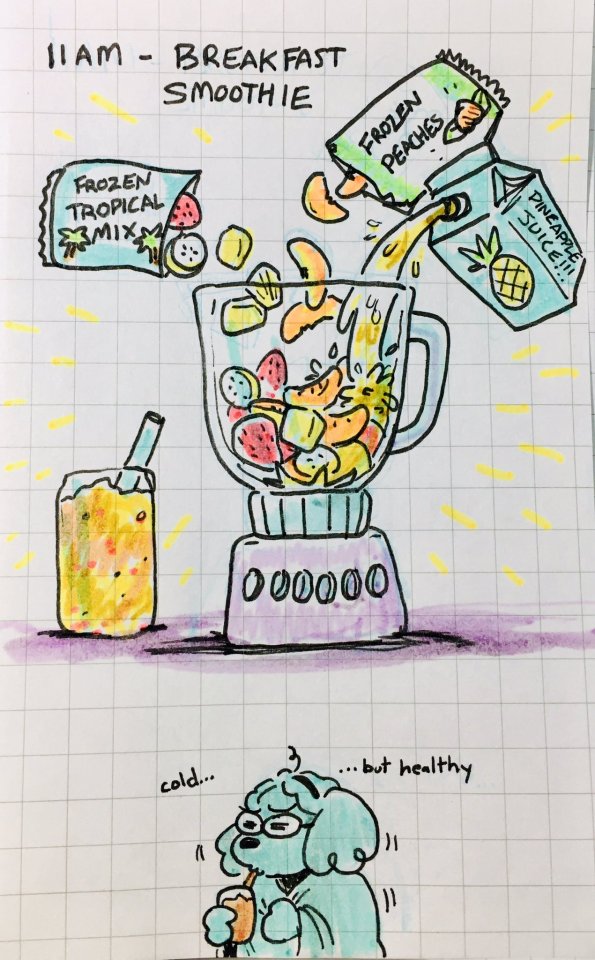 11AM - BREAKFAST
SMOOTHIE
FROZEN
PEACHES
FROZEN
TROPICAL
MIX
PINEAPPLE
JUICE!!!
cold...
...but healthy